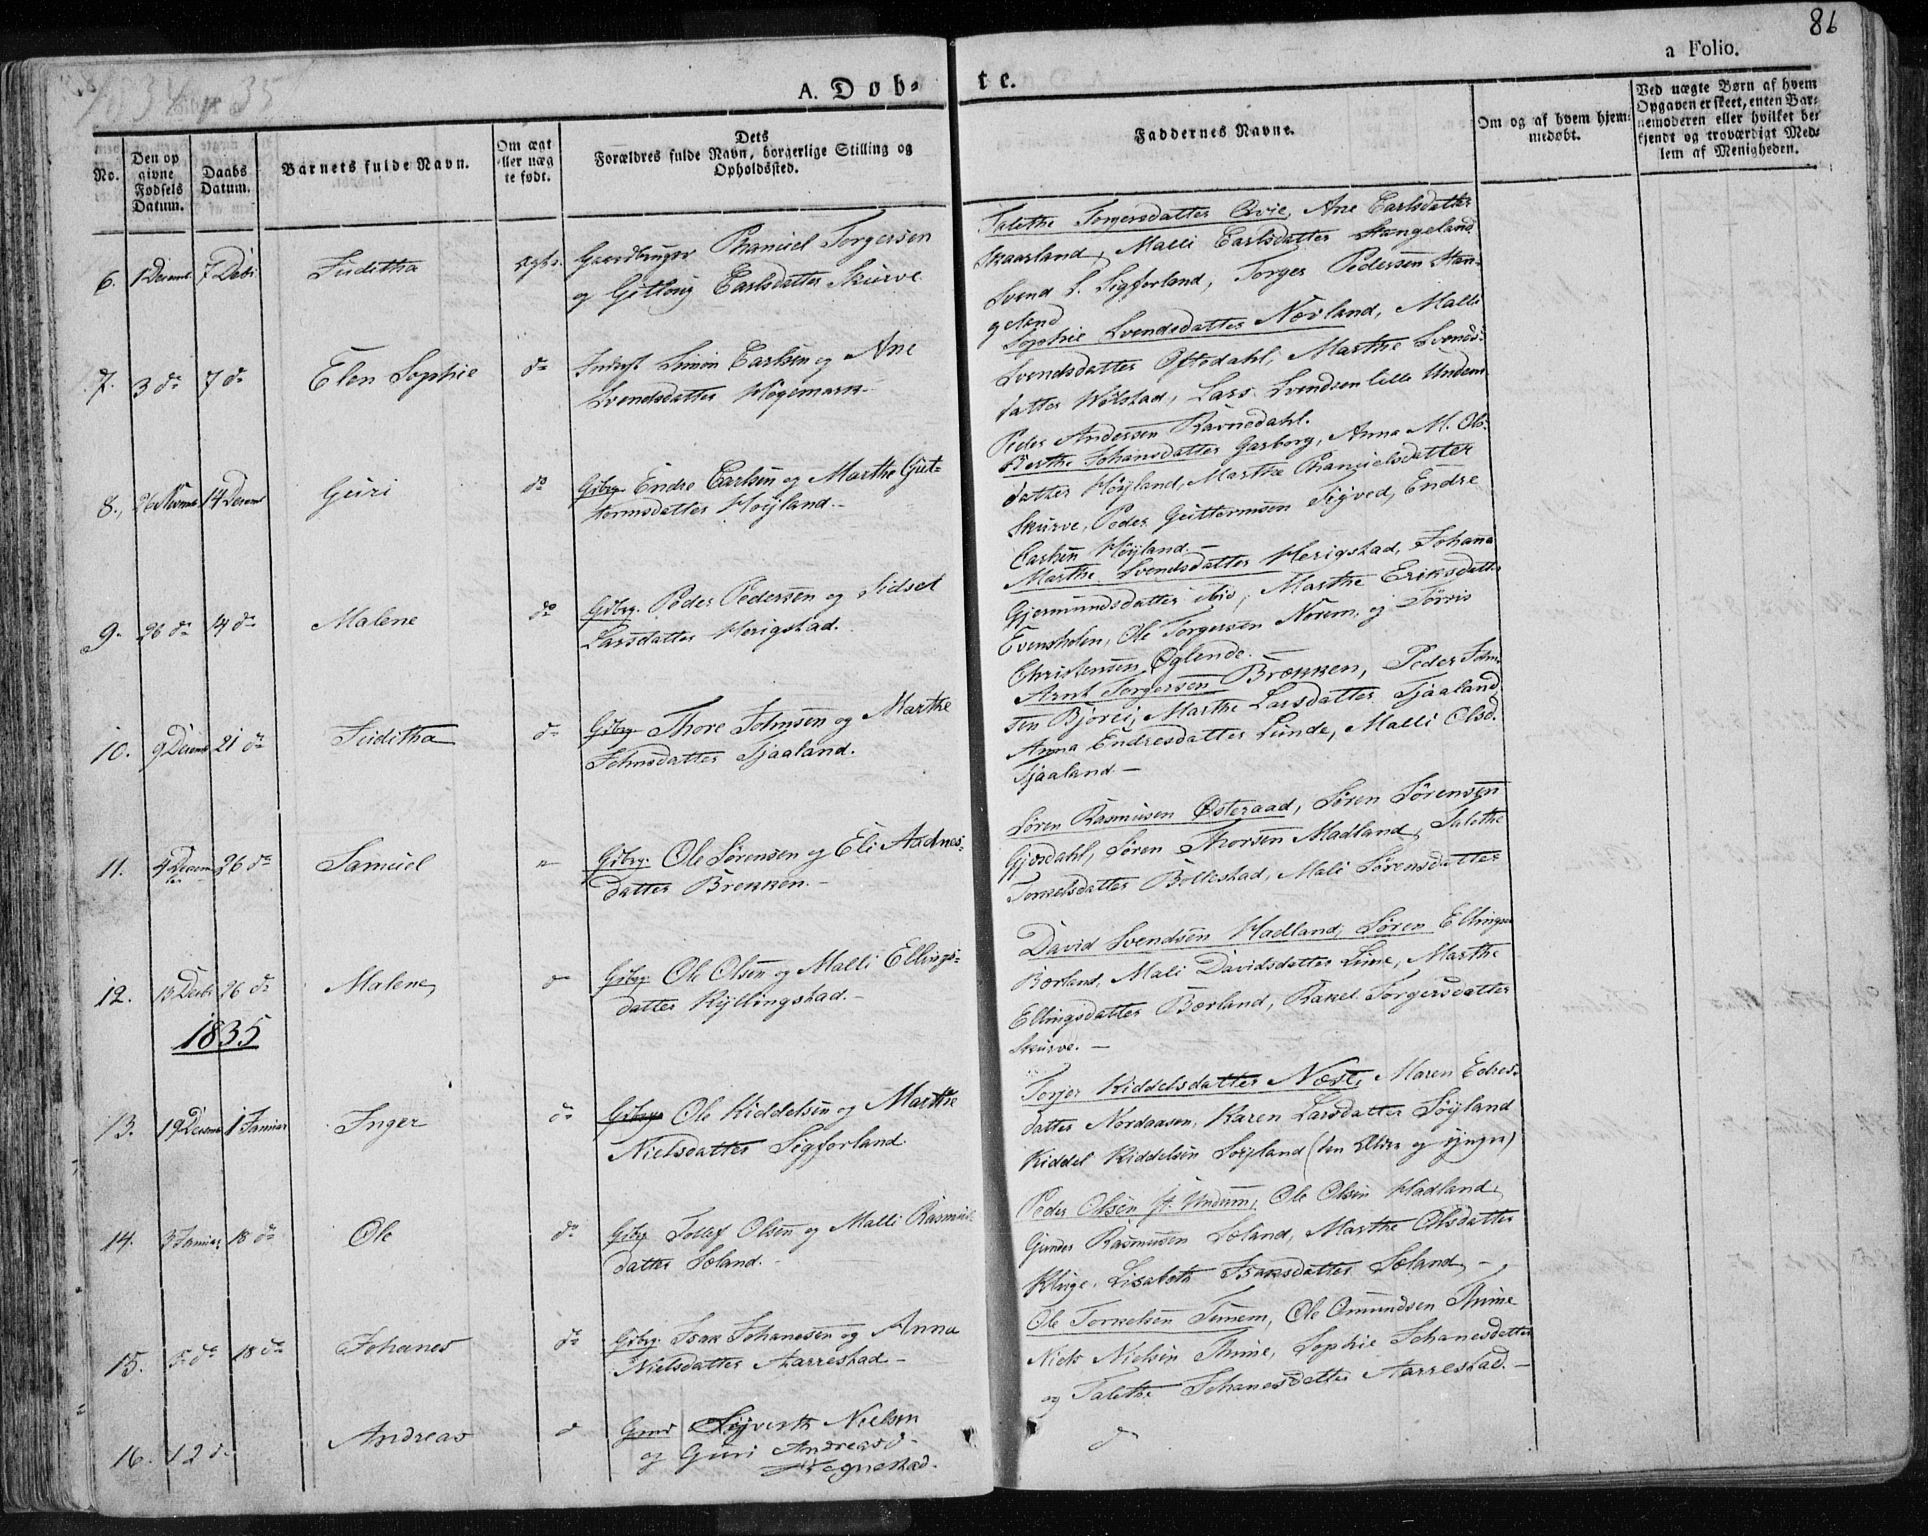 1834 35
86
a Folio.
A. Døb-
te.
No.
Den op
givne
Fødsels
Datum.
Daabs
Datum.
Barnets fulde Navn.
Om ægt
eller næg
te født.
Dets
Forældres fulde Navn, borgerlige Stilling og
Opholdssted.
Faddernes Navne.
Om og af hvem hjem-
medøbt.
Ved uægte Børn af hvem
Opgaven er skeet, enten Bar-
nemoderen eller hvilket be-
kjendt og troværdigt Med-
lem af Menigheden.
6. 1 Decemb 7 Debr Juditha Gaardbruger Phanuel Torgersen
og Gitlaug Carlsdatter Skurve
Talethe Torgersdatter Qvie, Ane Carlsdatter
Skaarland, Malli Carlsdatter Stangeland
Svend S. Sigforland, Torger Pedersen Stan-
geland
7. 3 do 7 do Elen Sophie do Simon Carlsen og Ane
Svendsdatter Høgemark
Sophie Svendsdatter Nævland, Malli
Svendsdatter Oftedahl, Marthe Svends-
datter Wølstad, Lars Svendsen lille Undem
Peder Andersen Ravnedahl.
8. 26 Novemb 14 Decemb Guri do Gbrg. Endre Carlsen og Marthe Gut-
tormsdatter Høyland.-
Berthe Johansdatter Garborg, Anna M. Ols-
datter Høyland, Martha Phanuelsdatter
Skurve, Peder Guttormsen Sigved, Endre
Carlsen Høyland.-
9. 26 do 14 do Malene do Gbrg. Peder Pedersen og Sidsel
Larsdatter Herigstad.
Marthe Svendsdatter Herigstad, Johana
Gjermundsdatter ibid, Marthe Eriksdatter
Evensholen, Ole Torgersen Norem, og Torris
Christensen Øglende.-
10. 9 Decemb 21 do Juditha do Gbrg Thore Johnsen og Marthe
Johnsdatter Tjaaland.
Arnt Torgersen Brekken, Peder John-
sen Bjorei, Marthe Larsdatter Tjaaland
Anna Endresdatter Lunde, Malli Olsd.
Tjaaland-
11. 4 Decem 26 do Samuel Gbrg. Ole Sørensen og Eli Aadnes-
datter Brekken.-
Søren Rasmusen Østeraad, Søren Sørensen
Gjesdahl, Søren Thorsen Madland, Talethe
Torkelsdatter Bollestad, Mali Sørensdatter
12. 13 Decbr 26 do Malene do Gbrg Ole Olsen og Malli Ellings-
datter Kyllingstad.-
David Svendsen Madland, Søren Ellingsen
Bærland, Mali Davidsdatter Lime, Marthe
Ellingsdatter Bærland, Rakel Torgersdatter
Skurve.-
1835
13. 19 Decemb 1 Januar Inger do Gbrg. Ole Kiddelsen og Marthe
Nielsdatter Sigforland
Kiddelsdatter Næse, Maren Edres-
datter Nordaasen, Karen Larsdatter Søyland
Kiddel Kiddelsen Søyland (den ældre og yngre)
14. 3 Januar 18 do Ole do Gbrg Tollef Olsen og Malli Rasmus-
datter Soland.
Peder Olsen St. Undem, Ole Olsen Madland,
Gunder Rasmusen Soland, Marthe Olsdatter
Kluge, Lisabeth Isaksdatter Soland,-
15. 5 do 18 do Johanes do Gbrg. Isak Johanesen og Anna
Nielsdatter Aarrestad-
Ole Torkelsen Tunem, Ole Omundsen Thime
Niels Nielsen Thime, Sophie Johanesdatter
og Talethe Johanesdatter Aarrestad.-
16. 12 do Andreas do Sigverth Nielsen
og Guri Andreasd.
Vegnestad.
do